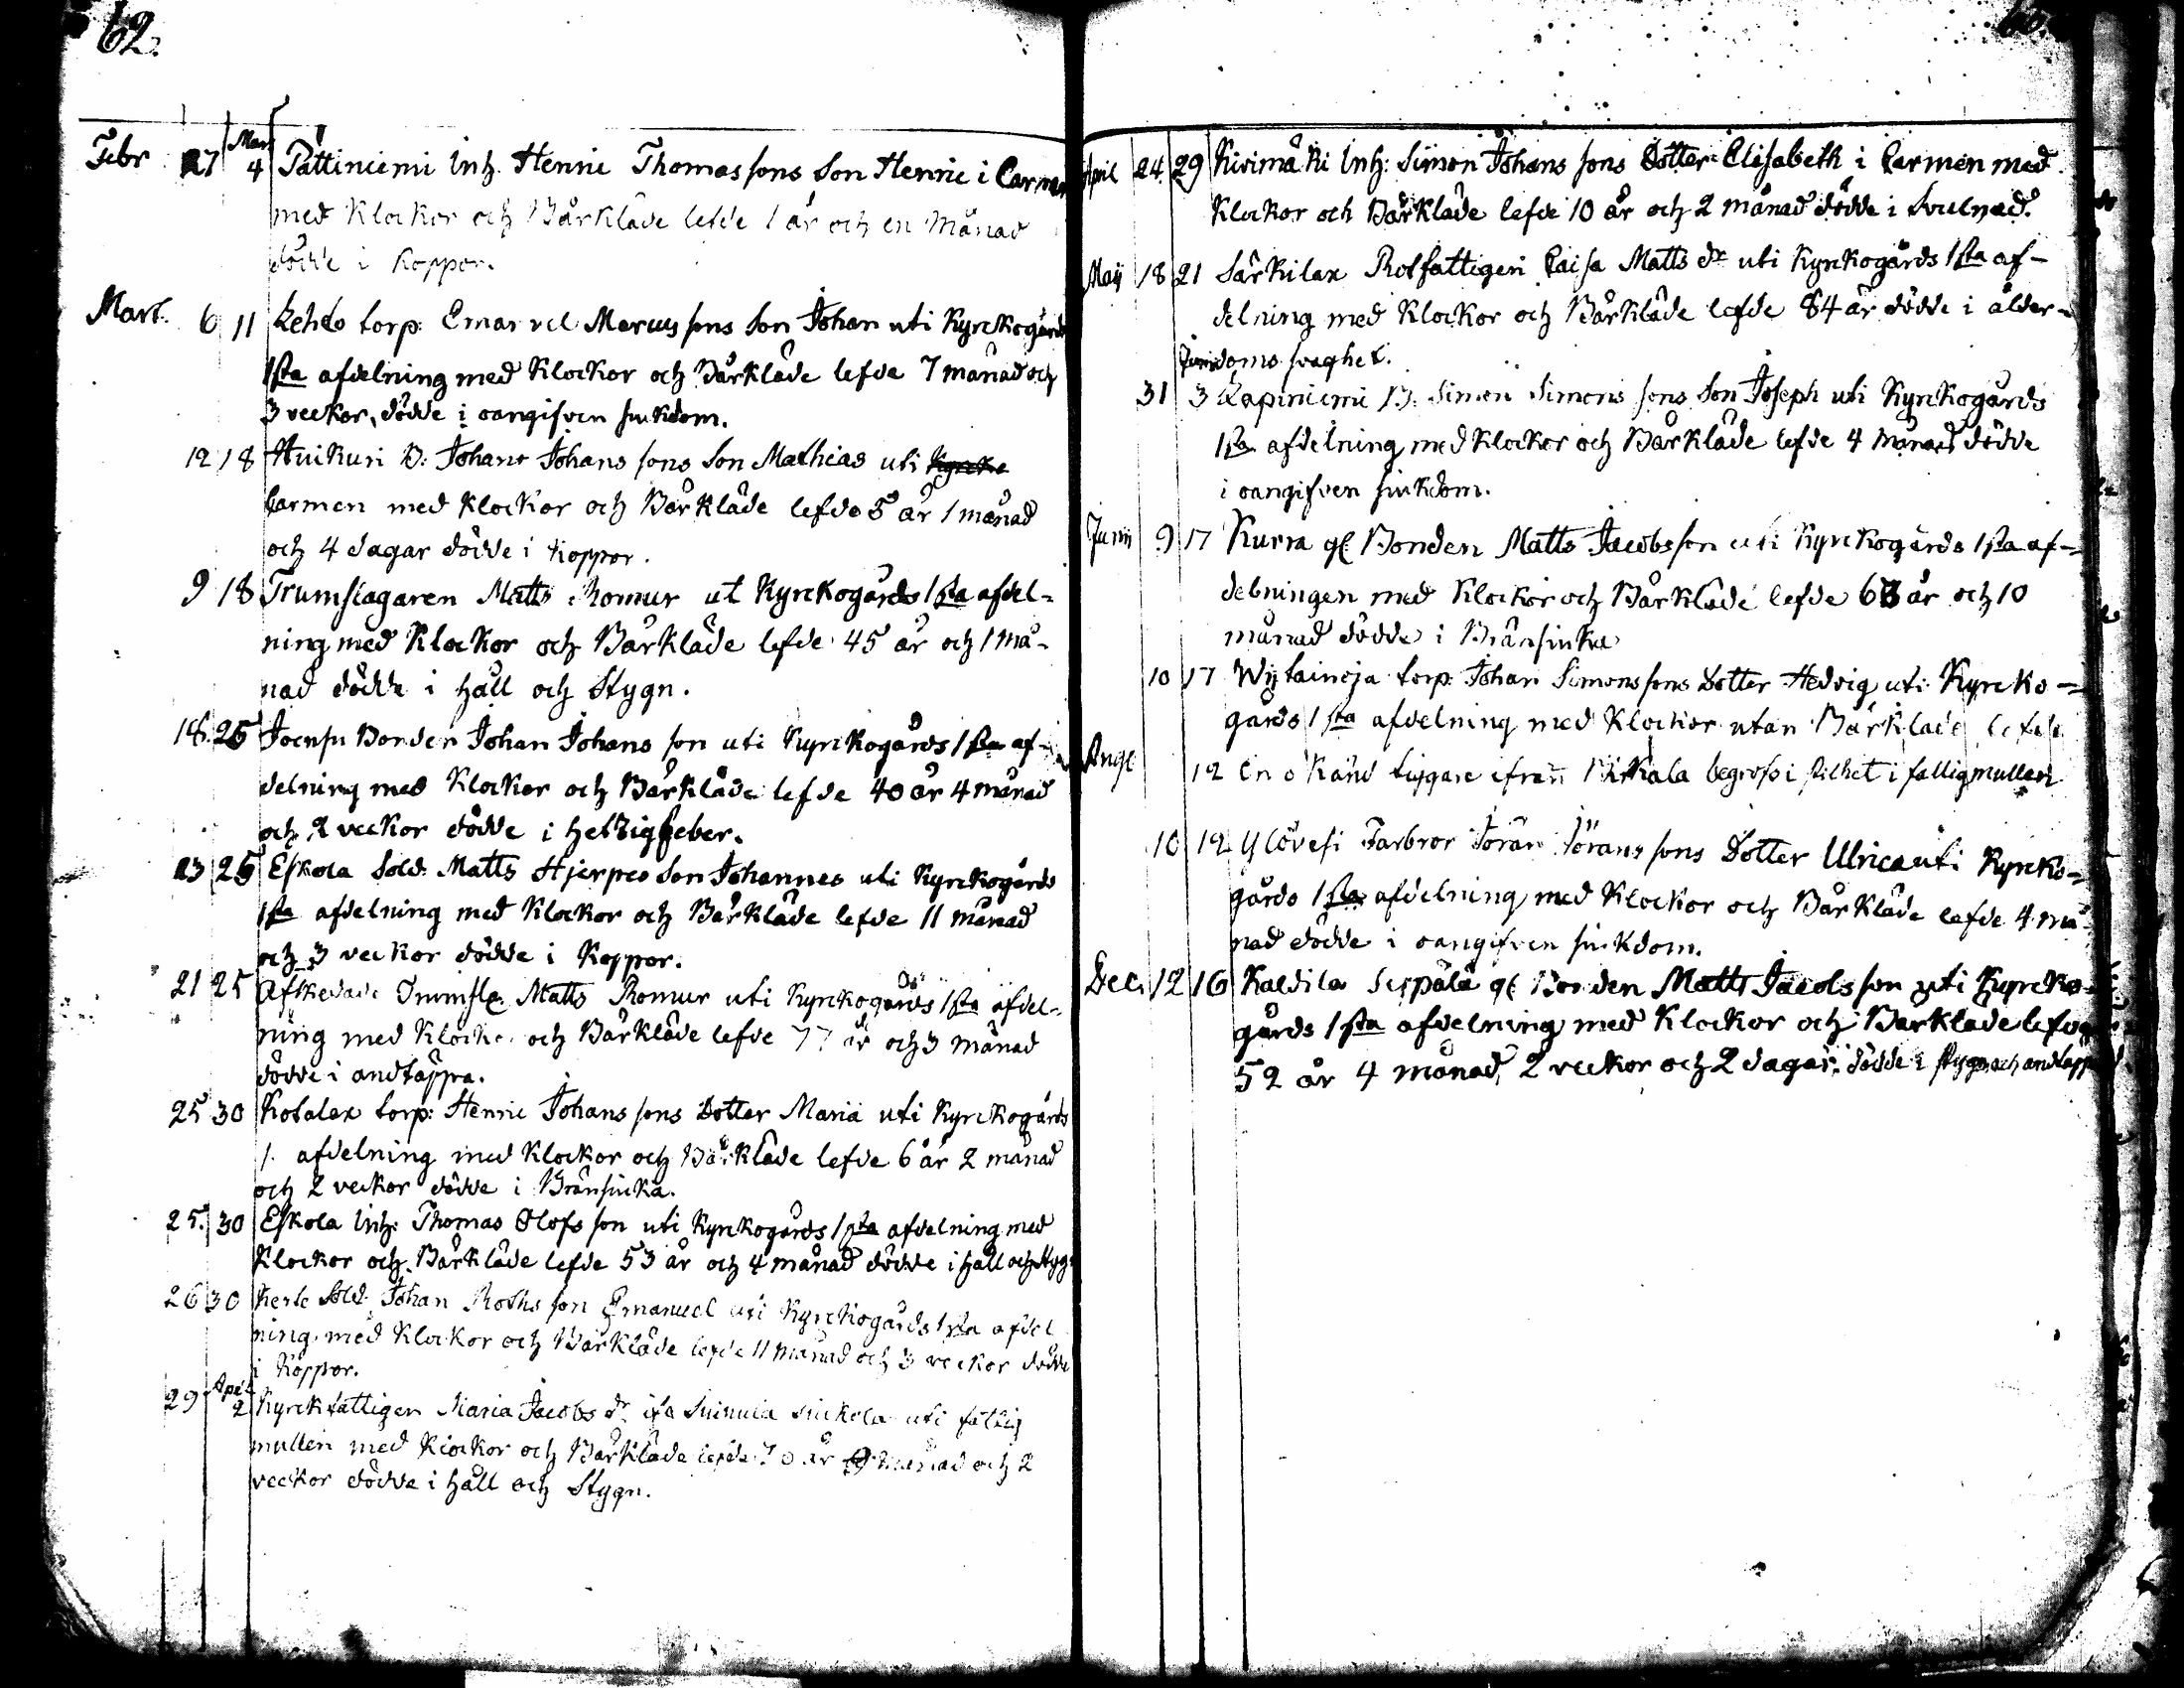 62.
Febr 27 Mars 4 Pättiniemi Inh. Henric Thomas sons Son Henric i Carmen
med Klockor och Bårkläde lefde 1 år och en Månad
dödde i Koppor.
Mart. 6 11 Lehto torp: Emanuel Marcus sons Son Johan uti Kyrckogårds
1sta afdelning med Klockor och Bårkläde lefde 7 månad och
3 veckor, dödde i oangifven siukdom.
12 18 Huikuri B: Johans Johans sons Son Mathias uti
Carmen med Klockor och Bårkläde lefde 5 år 1 månad
och 4 dagar dödde i Koppor.
9 18 Trumslagaren Matts Romur ut Kyrckogårds 1sta afdel-
ning med Klockor och Bårkläde lefde 45 år och 1 må-
nad dödde i håll och Stygn.
18. 25 Joensu Bonden Johan Johans son uti Kyrckogårds 1sta af-
delning med Klockor och Bårkläde lefde 40 år 4 månad
och 2 veckor dödde i hetzigfeber.
23 25 Eskola Sold. Matts Hjerpes Son Johannes uti Kyrckogårds
1sta afdelning med Klockor och Bårkläde lefde 11 månad
och 3 veckor dödde i Koppor.
21 25 Afskedade Trumsl. Matts Romur uti Kyrckogårds 1sta afdel-
ning med Klockor och Bårkläde lefde 77 år och 3 månad
dödde i andtäppa.
25 30 Kotalax torp: Henric Johans sons Dotter Maria uti Kyrckogårds
1. afdelning med Klockor och Bårkläde lefde 6 år 2 månad
och 2 veckor dödde i Bränsiuka.
25. 30 Eskola Inh: Thomas Olofs son uti Kyrckogårds 1sta afdelning med
Klockor och Bårkläde lefde 53 år och 4 månad dödde i håll och Stygn
26 30 Sold. Johan Roths son Emanuel uti Kyrckogårds 1sta afdel
ning med Klockor och Bårkläde lefde 11 månad och 3 veckor dödde
i Koppor.
29 Apr 2 Kyrckfattigen Maria Jacobs dr uti fattig
mullen med Klockor och Bårkläde lefde 70 år månad och 2
veckor dödde i håll och Stygn.
April 24. 29 Kivimäki Inh: Simon Johans sons Dotter Elisabeth i Carmen med
Klockor och Bårkläde lefde 10 år och 2 månad dödde i Svulnad.
Maij 18 21 Särkilax Rotfattigen Caisa Matts dr uti Kyrckogårds 1sta af-
delning med Klockor och Bårkläde lefde 84 år dödde i ålder-
doms svaghet.
31 3 Lapiniemi B: Simon Simons sons Son Joseph uti Kyrckogårds
1sta afdelning med Klockor och Bårkläde lefde 4 månad dödde
i oangifven siukdom.
Junii 9 17 Kurra gl. Bonden Matts Jacobsson uti Kyrckogårds 1sta af-
delningen med Klockor och Bårkläde lefde 63 år och 10
månad dödde i Bränsiuka
10 17 torp: Johan Simonssons Dotter Hedvig uti Kyrcko-
gårds 1sta afdelning med Klockor utan Bårkläde lefde
Aug. 12 En okänd tiggare ifrån Birkala begrofs i stilhet i fattigmullen
10 12 Ylövesi Farbror Jöran Jöranssons Dotter Ulrica uti Kyrcko-
gårds 1sta afdelning med Klockor och Bårkläde lefde 4 må-
nad dödde i oangifven siukdom.
Dec. 12 16 Kaldila Seppälä gl. Bonden Matts Jacobsson uti Kyrcko-
gårds 1sta afdelning med Klockor och Bårkläde lefde
52 år 4 månad, 2 veckor och 2 dagar dödde i stygn och andtäppa